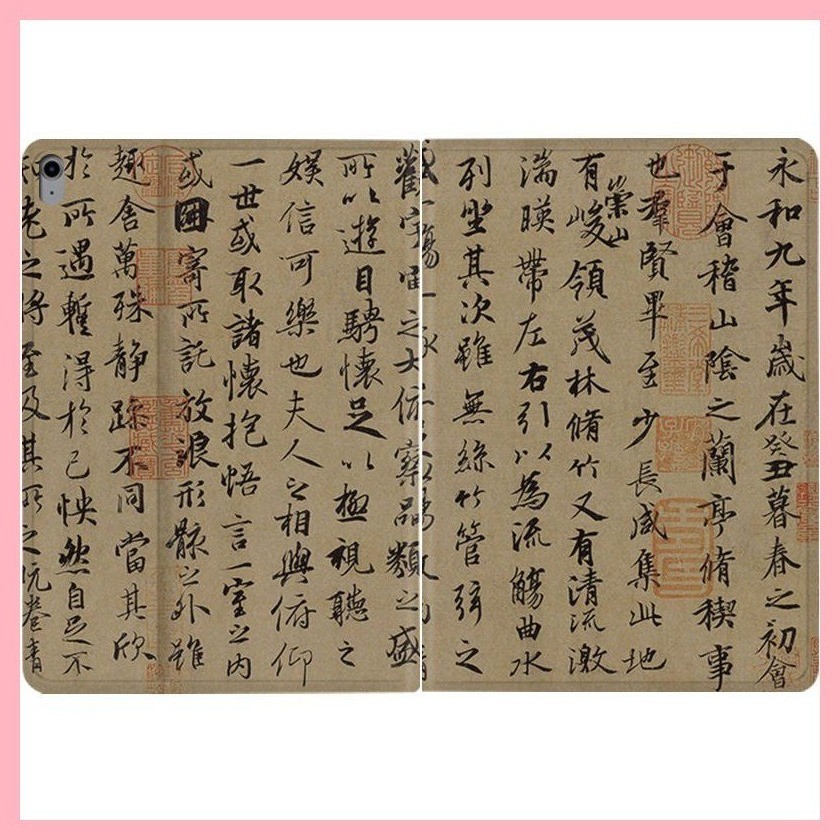 永和九年歲在癸丑暮春之初會
于會稽山陰之蘭亭脩稧事
也群賢畢至少長咸集此地
有崇山峻領茂林脩竹又有清流激
湍暎帶左右引以為流觴曲水
列坐其次雖無絲竹管弦之
觀宇宙之大俯察品類之盛
所以遊目騁懷足以極視聽之
娛信可樂也夫人之相與俯仰
一世或取諸懷抱悟言一室之內
或因寄所託放浪形骸之外雖
趣舍萬殊静躁不同當其欣
於所遇蹔得於己怏然自足不
老之將至及其所之